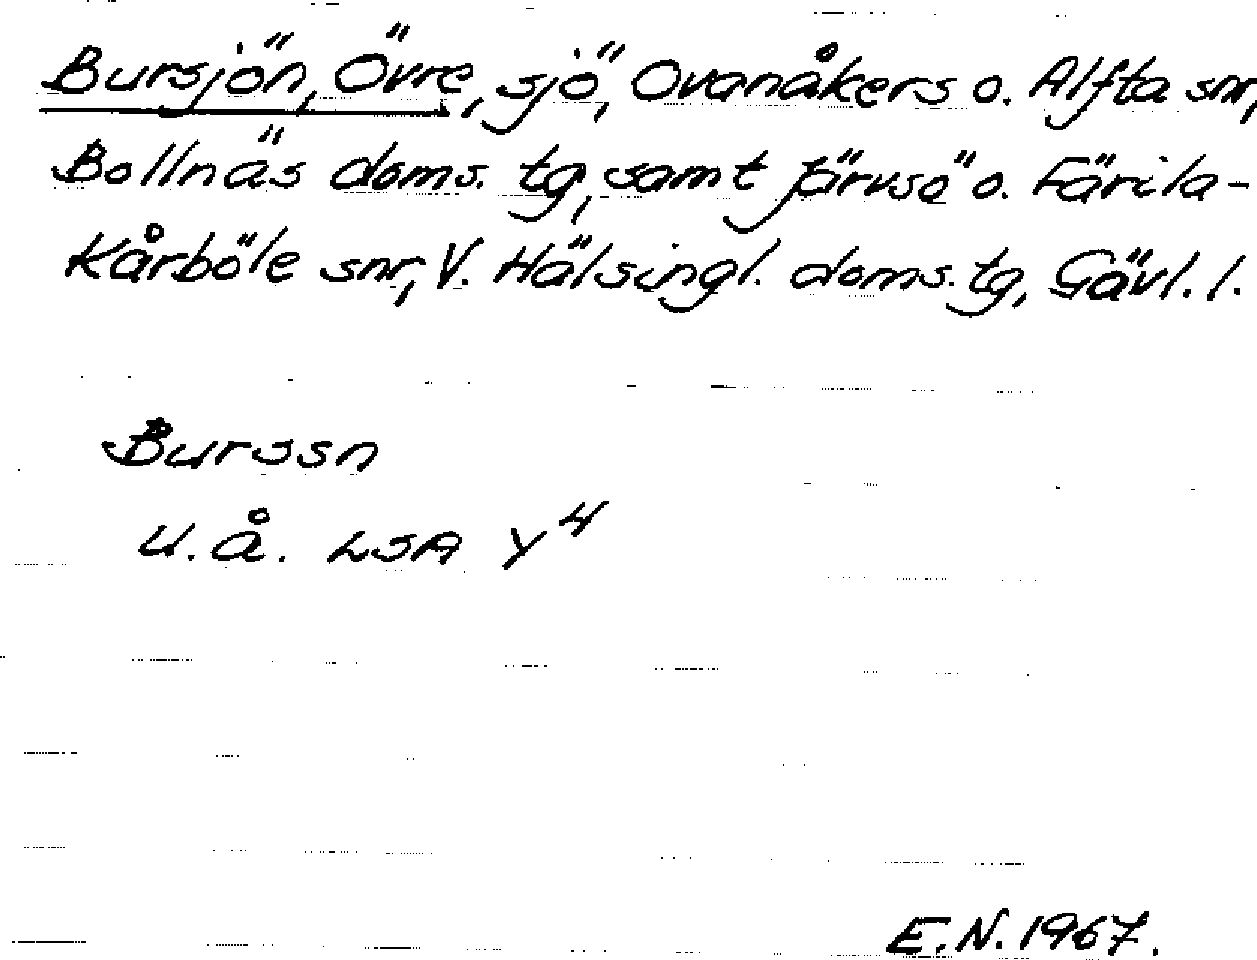 Bursjön, Övre, sjö, Ovanåkers o. Alfta snr,
Bollnäs doms. tg, samt Järvsö o. Färila-
Kårböle snr, V. Hälsingl. doms. tg, Gävl. l.
Burssn
u.å. LSA Y⁴
E.N. 1967.